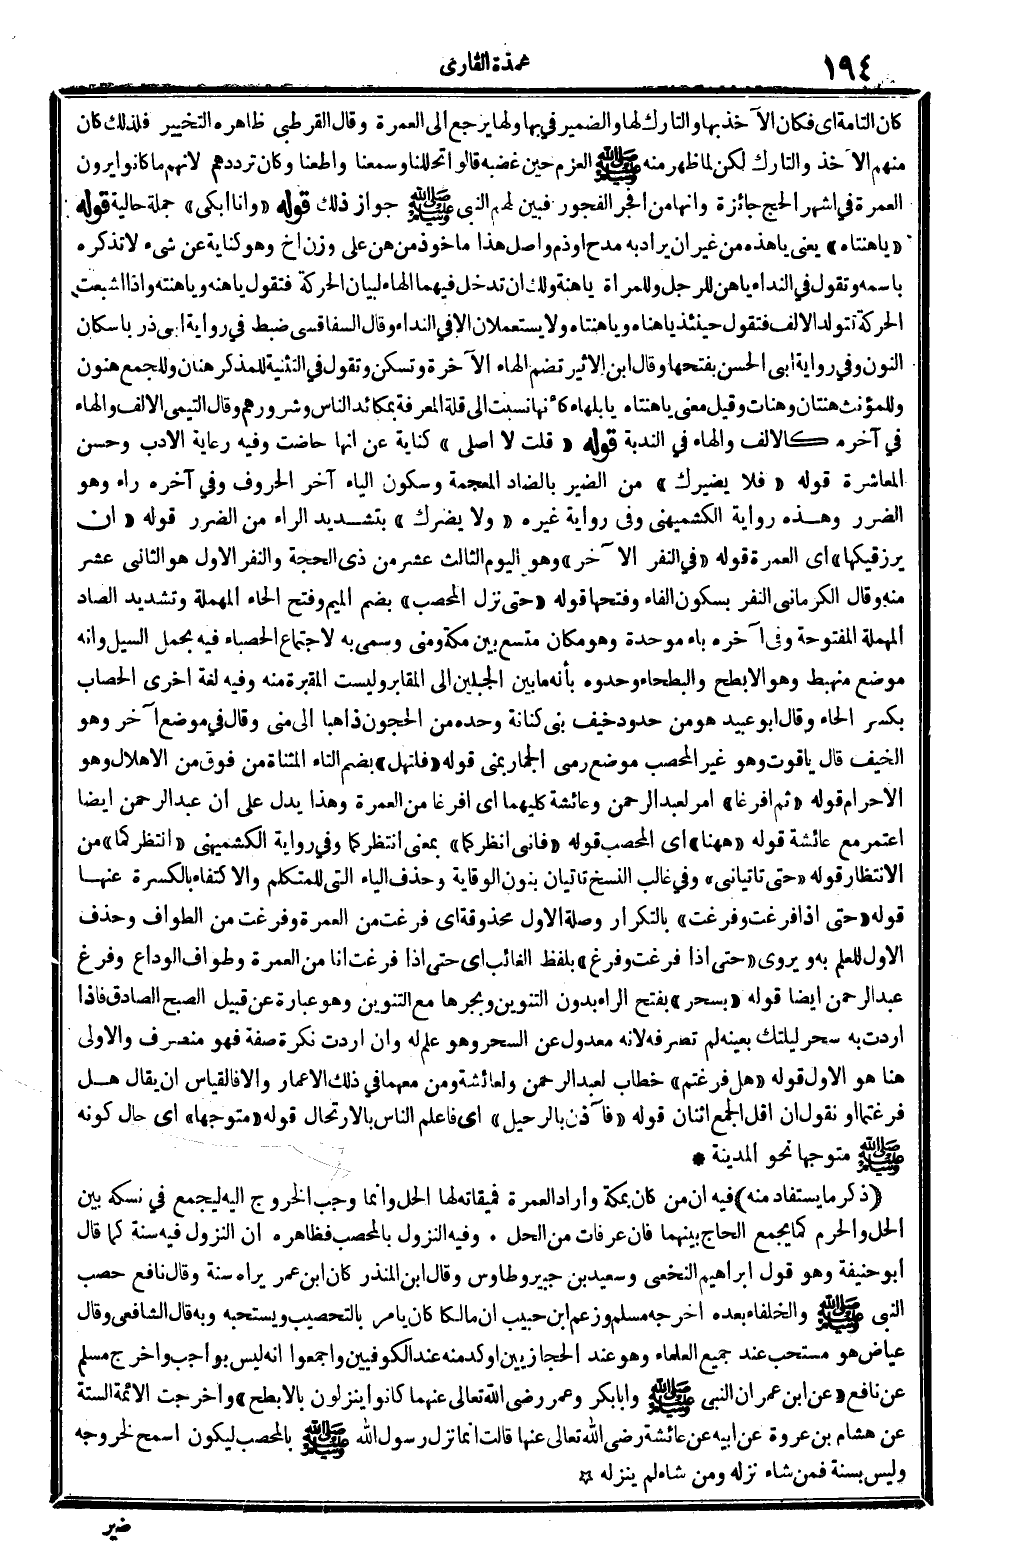 ١٩٤
عمدة القارى
كان التامة اى فكان الآخذ بها والتارك لها والضمير فى بها ولها يرجع الى العمرة وقال القرطبى ظاهره التخيير فلذلك كان
منهم الآخذ والتارك لكن لما ظهر منه ﷺ العزم حين غضبه قالوا تحللنا وسمعنا واطعنا وكان ترددهم لانهم ما كانوا يرون
العمرة فى اشهر الحج جائزة وانها من افجر الفجور فبين لهم النبى ﷺ جواز ذلك قوله «وانا ابكى» جملة حالية قوله
«ياهنتاه» يعنى ياهذه من غير ان يراد به مدح او ذم واصل هذا ماخوذ من هن على وزن اخ وهو كناية عن شىء لا تذكره
باسمه وتقول فى النداء ياهن للرجل وللمراة ياهنة ولك ان تدخل فيهما الهاء لبيان الحركة فتقول ياهنه وياهنته واذا اشبعت
الحركة تتولد الالف فتقول حينئذ ياهناه وياهنتاه ولا يستعملان الا فى النداء وقال السفاقسى ضبط فى رواية ابى ذر باسكان
النون وفى رواية ابى الحسن بفتحها وقال ابن الاثير تضم الهاء الآخرة وتسكن وتقول فى التثنية للمذكر هنان وللجمع هنون
وللمؤنث هنتان وهنات وقيل معنى ياهنتاه يابلهاء كأنها نسبت الى قلة المعرفة بمكائد الناس وشرورهم وقال التيمى الالف والهاء
فى آخره كالالف والهاء فى الندبة قوله «قلت لا اصلى» كناية عن انها حاضت وفيه رعاية الادب وحسن
المعاشرة قوله «فلا يضيرك» من الضير بالضاد المعجمة وسكون الياء آخر الحروف وفى آخره راء وهو
الضرر وهذه رواية الكشميهنى وفى رواية غيره «ولا يضرك» بتشديد الراء من الضرر قوله «ان
يرزقيكها» اى العمرة قوله «فى النفر الآخر» وهو اليوم الثالث عشر من ذى الحجة والنفر الاول هو الثانى عشر
منه وقال الكرمانى النفر بسكون الفاء وفتحها قوله «حتى نزل المحصب» بضم الميم وفتح الحاء المهملة وتشديد الصاد
المهملة المفتوحة وفى آخره باء موحدة وهو مكان متسع بين مكة ومنى وسمى به لاجتماع الحصباء فيه بحمل السيل وانه
موضع منهبط وهو الابطح والبطحاء وحدوه بأنه ما بين الجبلين الى المقابر وليست المقبرة منه وفيه لغة اخرى الحصاب
بكسر الحاء وقال ابو عبيد هو من حدود خيف بنى كنانة وحده من الحجون ذاهبا الى منى وقال فى موضع آخر وهو
الخيف قال ياقوت وهو غير المحصب موضع رمى الجمار بمنى قوله «فلتهل» بضم التاء المثناة من فوق من الاهلال وهو
الاحرام قوله «ثم افرغا» امر لعبد الرحمن وعائشة كليهما اى افرغا من العمرة وهذا يدل على ان عبد الرحمن ايضا
اعتمر مع عائشة قوله «ههنا» اى المحصب قوله «فانى انظركما» بمعنى انتظركما وفى رواية الكشميهنى «انتظركما» من
الانتظار قوله «حتى تاتيانى» وفى غالب النسخ تاتيان بنون الوقاية وحذف الياء التى للمتكلم والاكتفاء بالكسرة عنها
قوله «حتى اذا فرغت وفرغت» بالتكرار وصلة الاول محذوفة اى فرغت من العمرة وفرغت من الطواف وحذف
الاول للعلم به ويروى «حتى اذا فرغت وفرغ» بلفظ الغائب اى حتى اذا فرغت انا من العمرة وطواف الوداع وفرغ
عبد الرحمن ايضا قوله «بسحر» بفتح الراء بدون التنوين وبجرها مع التنوين وهو عبارة عن قبيل الصبح الصادق فاذا
اردت به سحر ليلتك بعينه لم تصرفه لانه معدول عن السحر وهو علم له وان اردت نكرة صفة فهو منصرف والاولى
هنا هو الاول قوله «هل فرغتم» خطاب لعبد الرحمن ولعائشة ومن معهما فى ذلك الاعمار والا فالقياس ان يقال هل
فرغتما او نقول ان اقل الجمع اثنان قوله «فآذن بالرحيل» اى فاعلم الناس بالارتحال قوله «متوجها» اى حال كونه
ﷺ متوجها نحو المدينة *
(ذكر ما يستفاد منه) فيه ان من كان بمكة واراد العمرة فميقاته لها الحل وانما وجب الخروج اليه ليجمع فى نسكه بين
الحل والحرم كما يجمع الحاج بينهما فان عرفات من الحل . وفيه النزول بالمحصب فظاهره ان النزول فيه سنة كما قال
ابو حنيفة وهو قول ابراهيم النخعى وسعيد بن جبير وطاوس وقال ابن المنذر كان ابن عمر يراه سنة وقال نافع حصب
النبى ﷺ والخلفاء بعده اخرجه مسلم وزعم ابن حبيب ان مالكا كان يامر بالتحصيب ويستحبه وبه قال الشافعى وقال
عياض هو مستحب عند جميع العلماء وهو عند الحجازيين اوكد منه عند الكوفيين واجمعوا انه ليس بواجب واخرج مسلم
عن نافع «عن ابن عمر ان النبى ﷺ وابا بكر وعمر رضى الله تعالى عنهما كانوا ينزلون بالابطح» واخرجت الائمة الستة
عن هشام بن عروة عن ابيه عن عائشة رضى الله تعالى عنها قالت انما نزل رسول الله ﷺ بالمحصب ليكون اسمح لخروجه
وليس بسنة فمن شاء نزله ومن شاء لم ينزله ☆
ضير